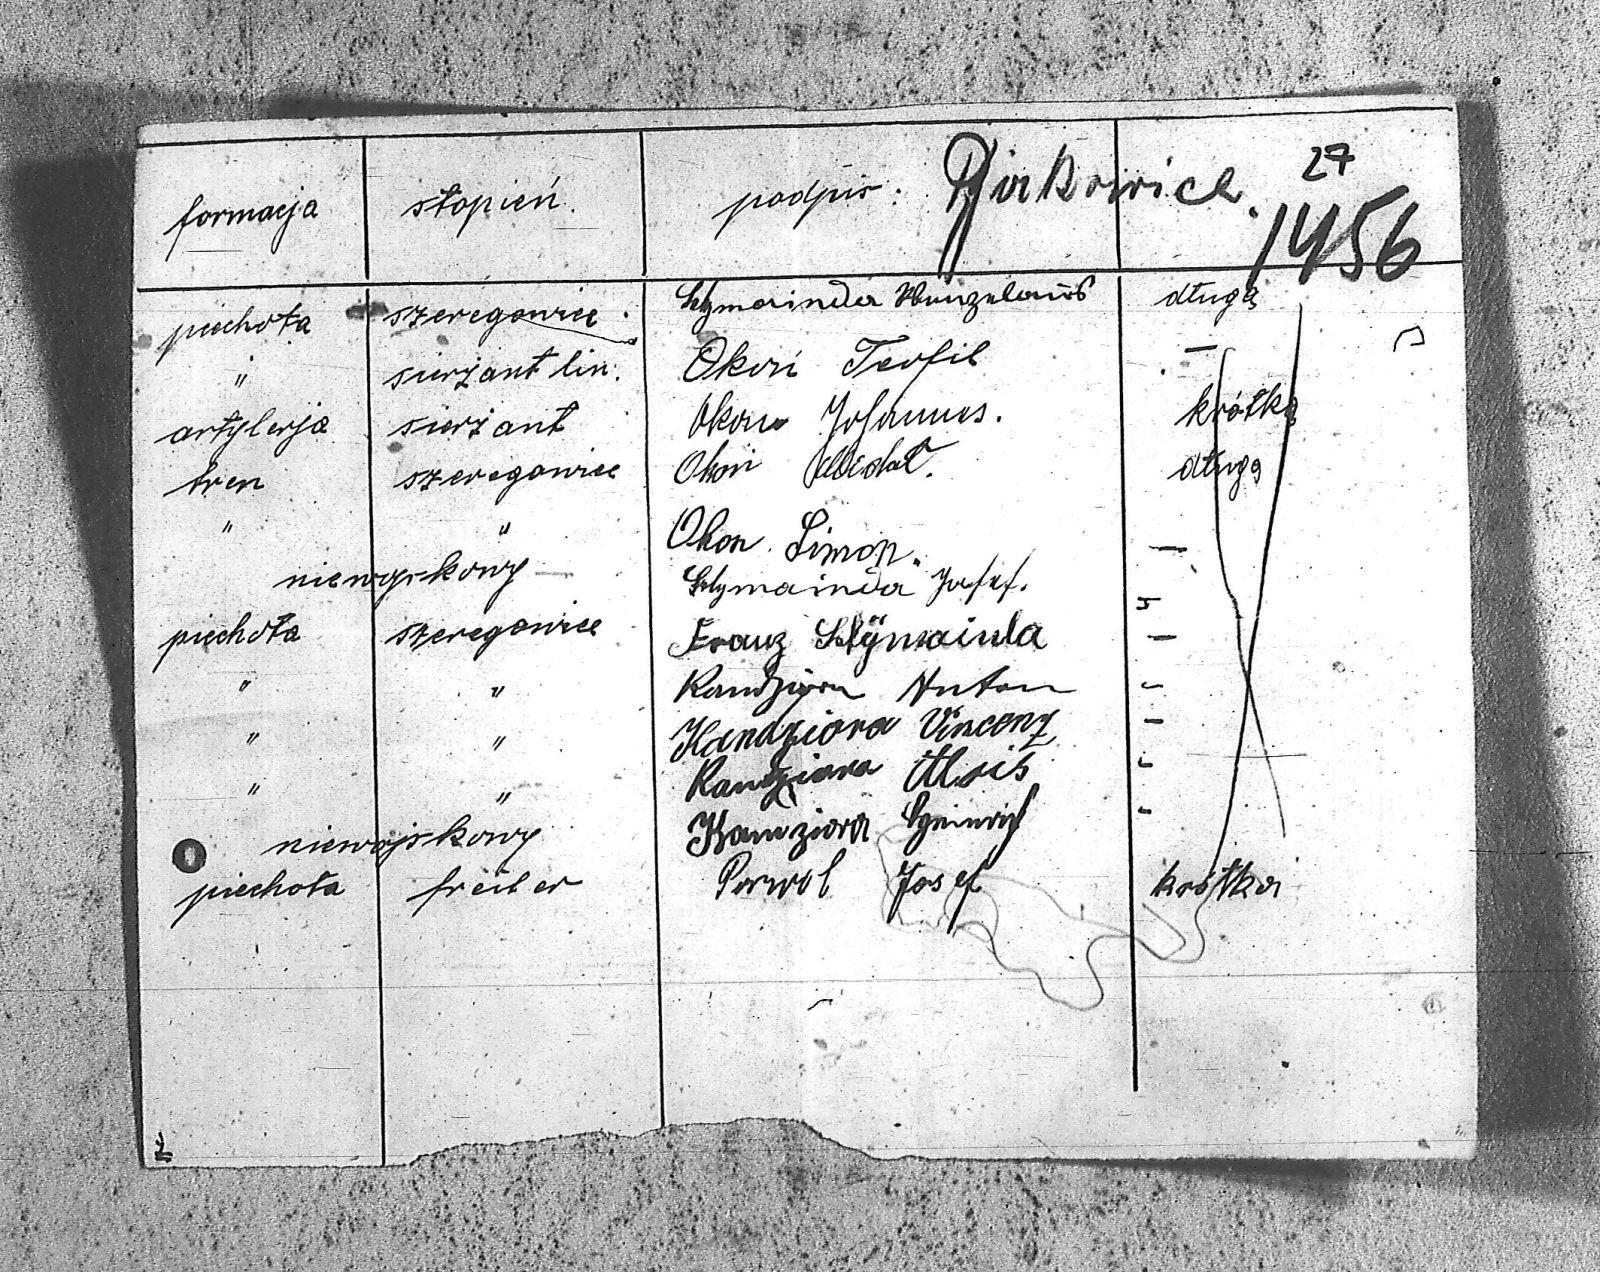 27
formacja stopień. podpis: Bjirkowice.
1456
piechota szeregowiec Szymainda długą
" sierżant lin. Okoń Teofil —
artylerja sierżant Okoń Johannes. krótką
tren szeregowiec Okoń długą
" " Okon Simon. —
niewojskowy — Szymainda Josef.
piechota szeregowiec Franz Szÿmainda —
" " Kandziora Anton -
" " Kandziora Vincenz -
" " Kandziora Alois
niewojskowy Kandziora Heinrich -
piechota freiter Porwol Josef krótka